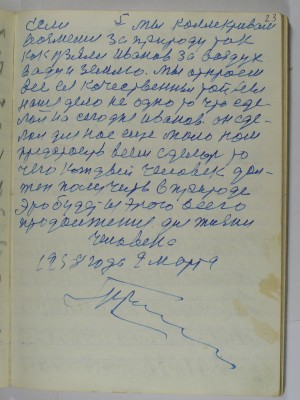 23
если мы коллективам
возмем за природу так
как взяли Иванов за воздух
за землю. мы откроем
все качественный
наше дело не одно то что сде-
лал на сегодня Иванов. он сде-
лал для нас еще мало нам
предстоит всем сделать то
чего каждый человек дол-
жен получить в природе
Это будет из этого всего
продолжение для жизни
человека
1958 года 9 марта